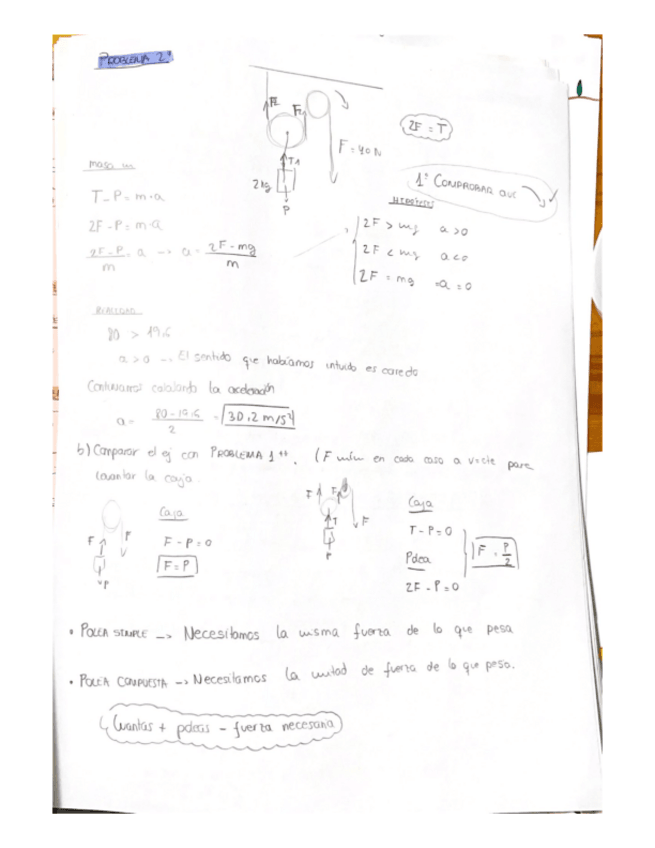 PROBLEMA 2º
FZ
F
F = 40 N
2F = T
T1
2kg
P
masa m
T - P = m·a
2F - P = m·a
2F - P / m = a → a = 2F - mg / m
1º COMPROBAR QUE
HIPÓTESIS
2F > mg a > 0
2F < mg a < 0
2F = mg = a = 0
REALIDAD
80 > 19,6
a > 0 → El sentido que habíamos intuido es correcto
Continuamos calculando la aceleración
a = 80 - 19,6 / 2 = 30,2 m/s²
b) Comparar el ej con PROBLEMA 1**. (F mín en cada caso a v=cte para
levantar la caja.
F
F
P
Caja
F - P = 0
F = P
F
F
T
F
P
Caja
T - P = 0
Polea
2F - P = 0
F = P / 2
• POLEA SIMPLE → Necesitamos la misma fuerza de lo que pesa
• POLEA COMPUESTA → Necesitamos la mitad de fuerza de lo que pesa.
Cuantas + poleas - fuerza necesaria